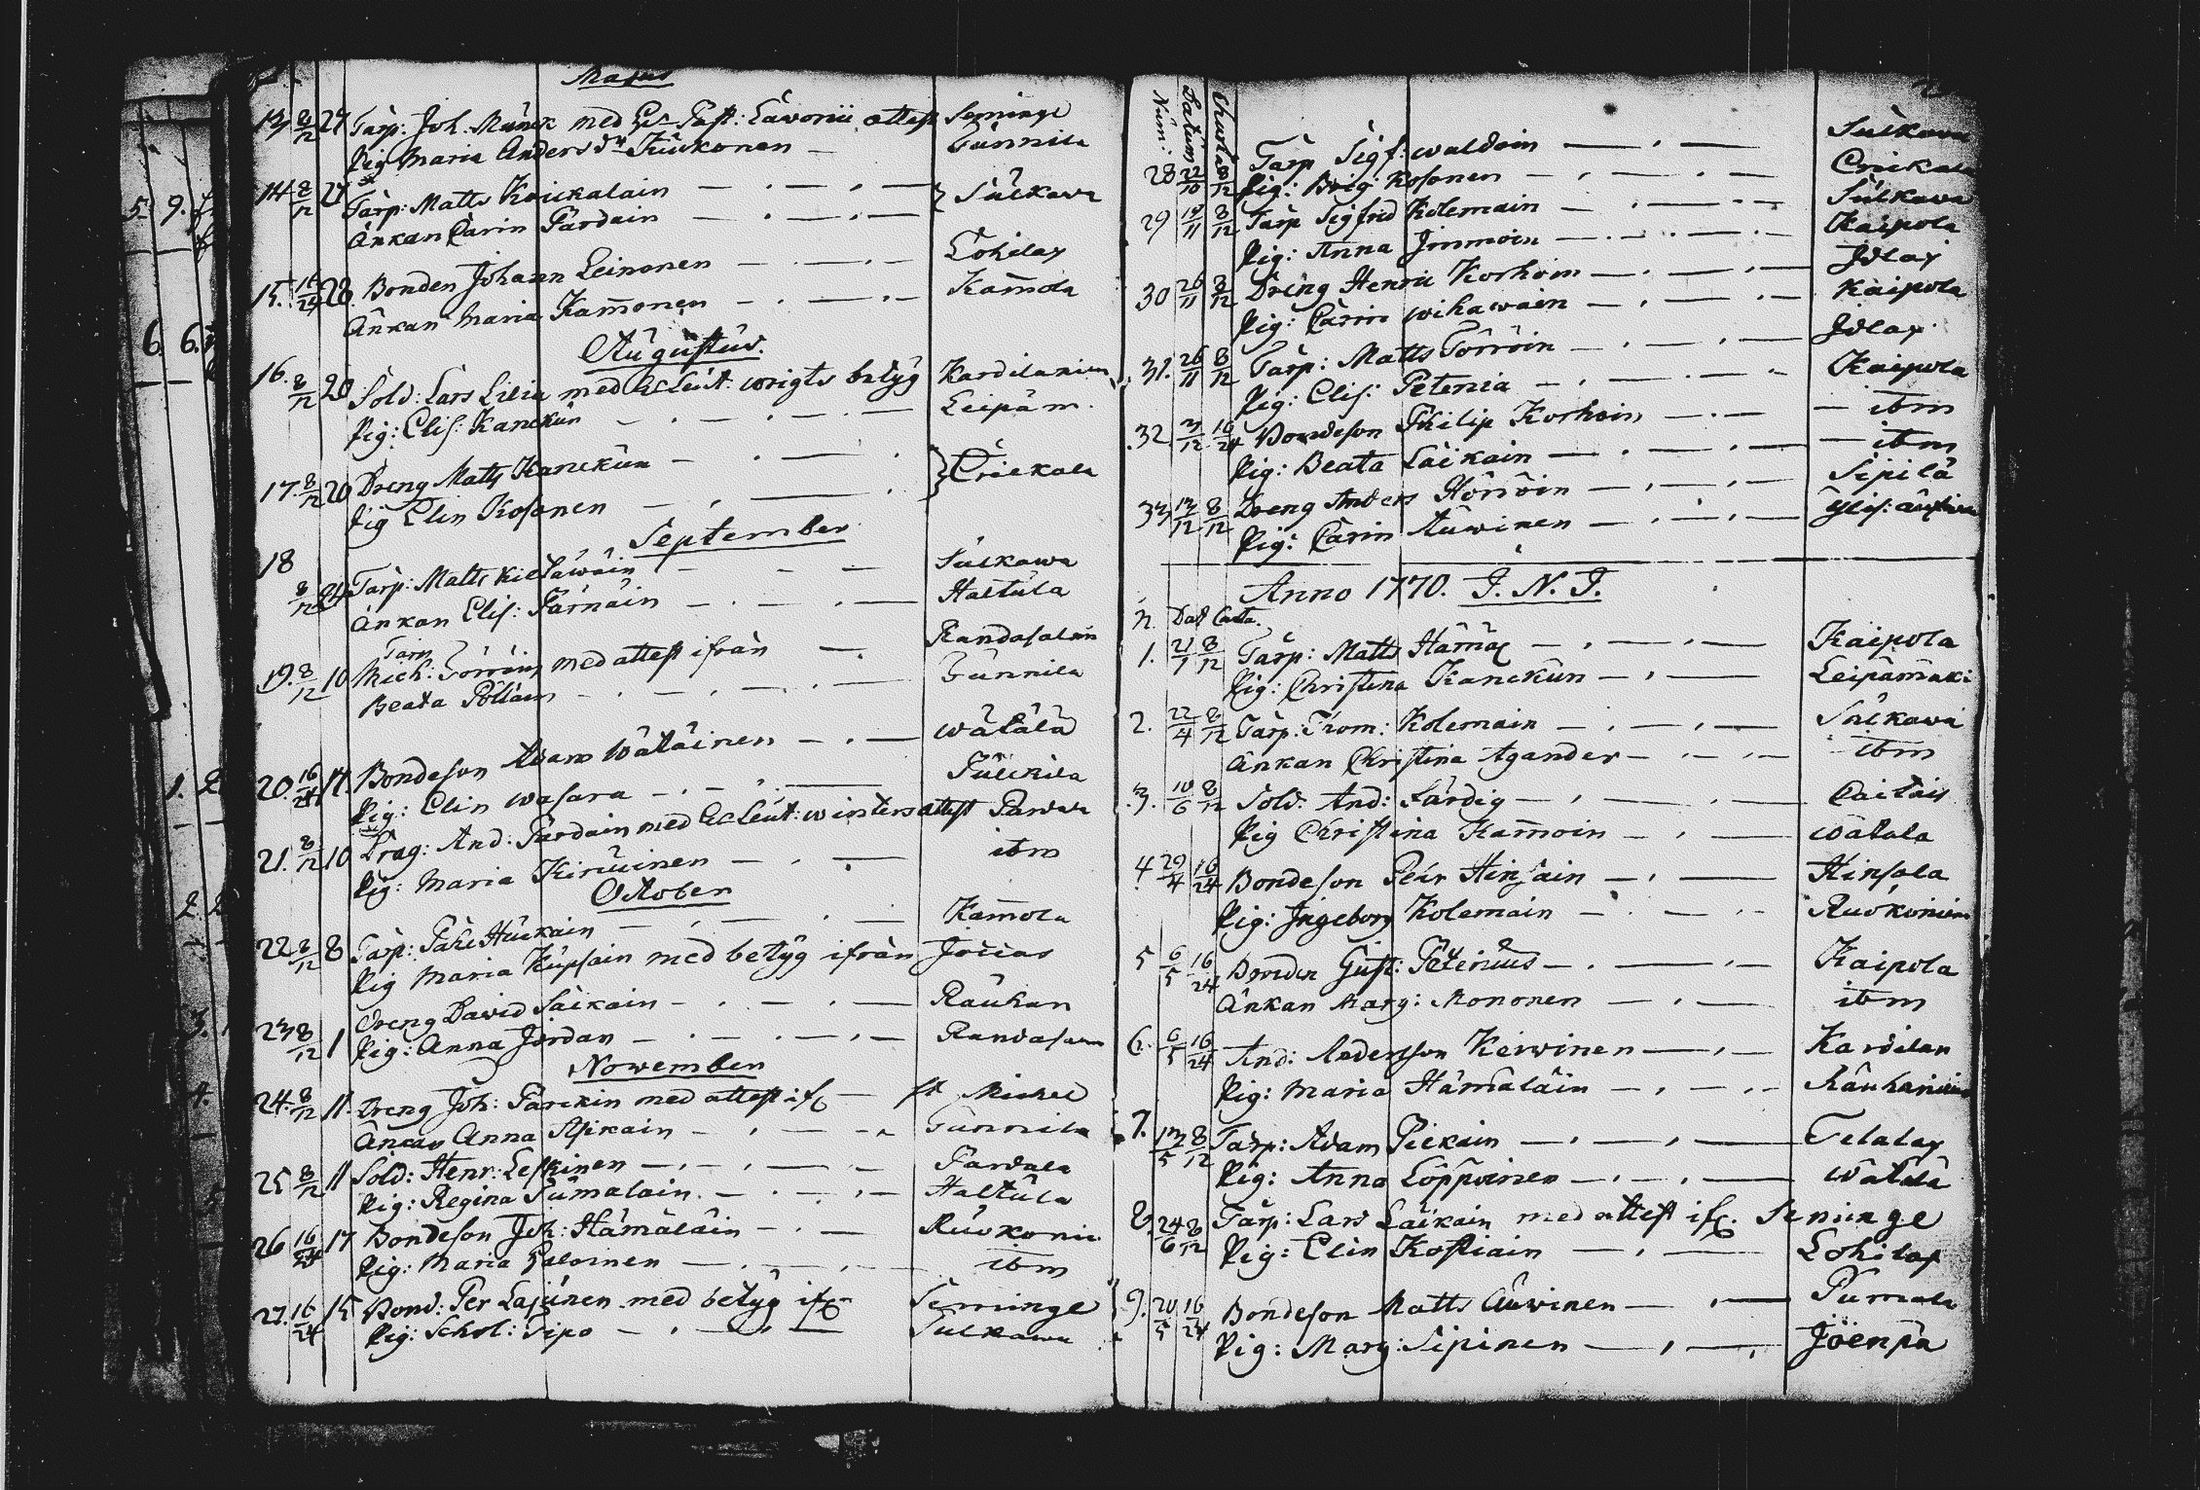 Majus
13 8/12 27 Tårp: Joh. Münck med H: Past: Lavonii attest Seminge
Pig Maria Anders dr Tiuskonen — Tünnila
14 8/12 27 Tårp: Matts Kaickalain — Sülkava
Änkan Carin Pardain —
15. 16/24 28. Bonden Johan Leinonen — Lohilax
Änkan Maria Kam̄onen — Kam̄ola
Augustus.
16. 8/12 20 Sold: Lars Lilia med H: Leut: wrigts betÿg Kardilaniem
Pig: Elis: Kanckün — Leipäm.
17. 8/12 20 Dreng Matts Kanckün — Crickala
Pig Elin Kosonen —
September
18 8/12 24 Tårp: Matts Kieläwäin — Sülkava
Änkan Elis: Pärnäin — Haltüla
19. 8/12 10 Tårp Mich: Törröin med attest ifrån — Randasalmi
Beata Pölläin — Tünnila
20. 16/24 17. Bondeson Adam Wätäinen — Wätälä
Pig: Elin Wasara — Pülckila
21. 8/12 10 Drag: And: Pardain med H: Leut: winters attest Pardala
Pig: Maria Kiriäinen — ibm
October
22 8/12 8 Tårp: Påhl Hückain — Kam̄ola
Pig Maria Küpsain med betÿg ifrån Jockas
23 8/12 1 Dreng David Laikain — Rauhan
Pig: Anna Jordan — Randasalmi
November
24. 8/12 11. Dreng Joh: Parckin med attest ifr — St Michel
Änkan Anna Asikain — Tünnila
25 8/12 11 Sold: Henr: Leskinen — Pardala
Pig: Regina Pümalain. — Haltüla
26 16/24 17 Bondeson Joh: Hämäläin — Rüokonie
Pig: Maria Paloinen — ibm
27. 16/24 15 Bond: Per Lajünen med betÿg ifr Seminge
Pig: Schol: Sipo — Sulkawa
Num: Datum Charta
28 22/10 8/12 Tårp Sigf: waldoin — Sülkava
Pig: Brig Kosonen — Crickala
29 19/11 8/12 Tårp Sigfrid Kolemain — Sülkava
Pig: Anna Immoin — Kaipola
30 26/11 8/12 Dreng Henric Korhoin — Idlax
Pig: Carin wihawain — Kaipola
31. 26/11 8/12 Tårp: Matts Törröin — Idlax
Pig: Elis: Petenia — Kaipola
32. 3/12 16/24 Bondeson Philip Korhoin — ibm
Pig: Beata Laikain — ibm
33 13/12 8/12 Dreng Anders Hörröin — Sipilä
Pig: Carin Auwinen —
Anno 1770. I. N. J.
N. Dat Carta.
1. 21/1 8/12 Tårp: Matts Hämäl — Kaipola
Pig: Christina Kanckün — Leipämäki
2. 22/4 8/12 Tårp: Thom: Kolemain — Sülkava
Änkan Christina Agander — ibm
3. 10/6 8/12 Sold: And: Färdig — Cailais
Pig Christina Kam̄oin — Wätälä
4 29/4 16/24 Bondeson Pehr Hinsain — Hinsala
Pig: Ingeborg Kolemain — Ruokoniem
5 6/5 16/24 Bonden Gust: Petenius — Kaipola
Änkan Marg: Mononen — ibm
6. 6/5 16/24 And: Andersson Kerwinen — Kardilan
Pig: Maria Hämäläin — Rauhaniemi
7. 13/5 8/12 Tårp: Adam Pickain — Telalax
Pig: Anna Loppoinen — Wätälä
8. 24/6 8/12 Tårp: Lars Laikain med attest ifr. Seminge
Pig: Elin Kostiain — Lohilax
9. 20/5 16/24 Bondeson Matts Auwinen — Pumala
Pig: Marg: Sipinen — Jöenpä